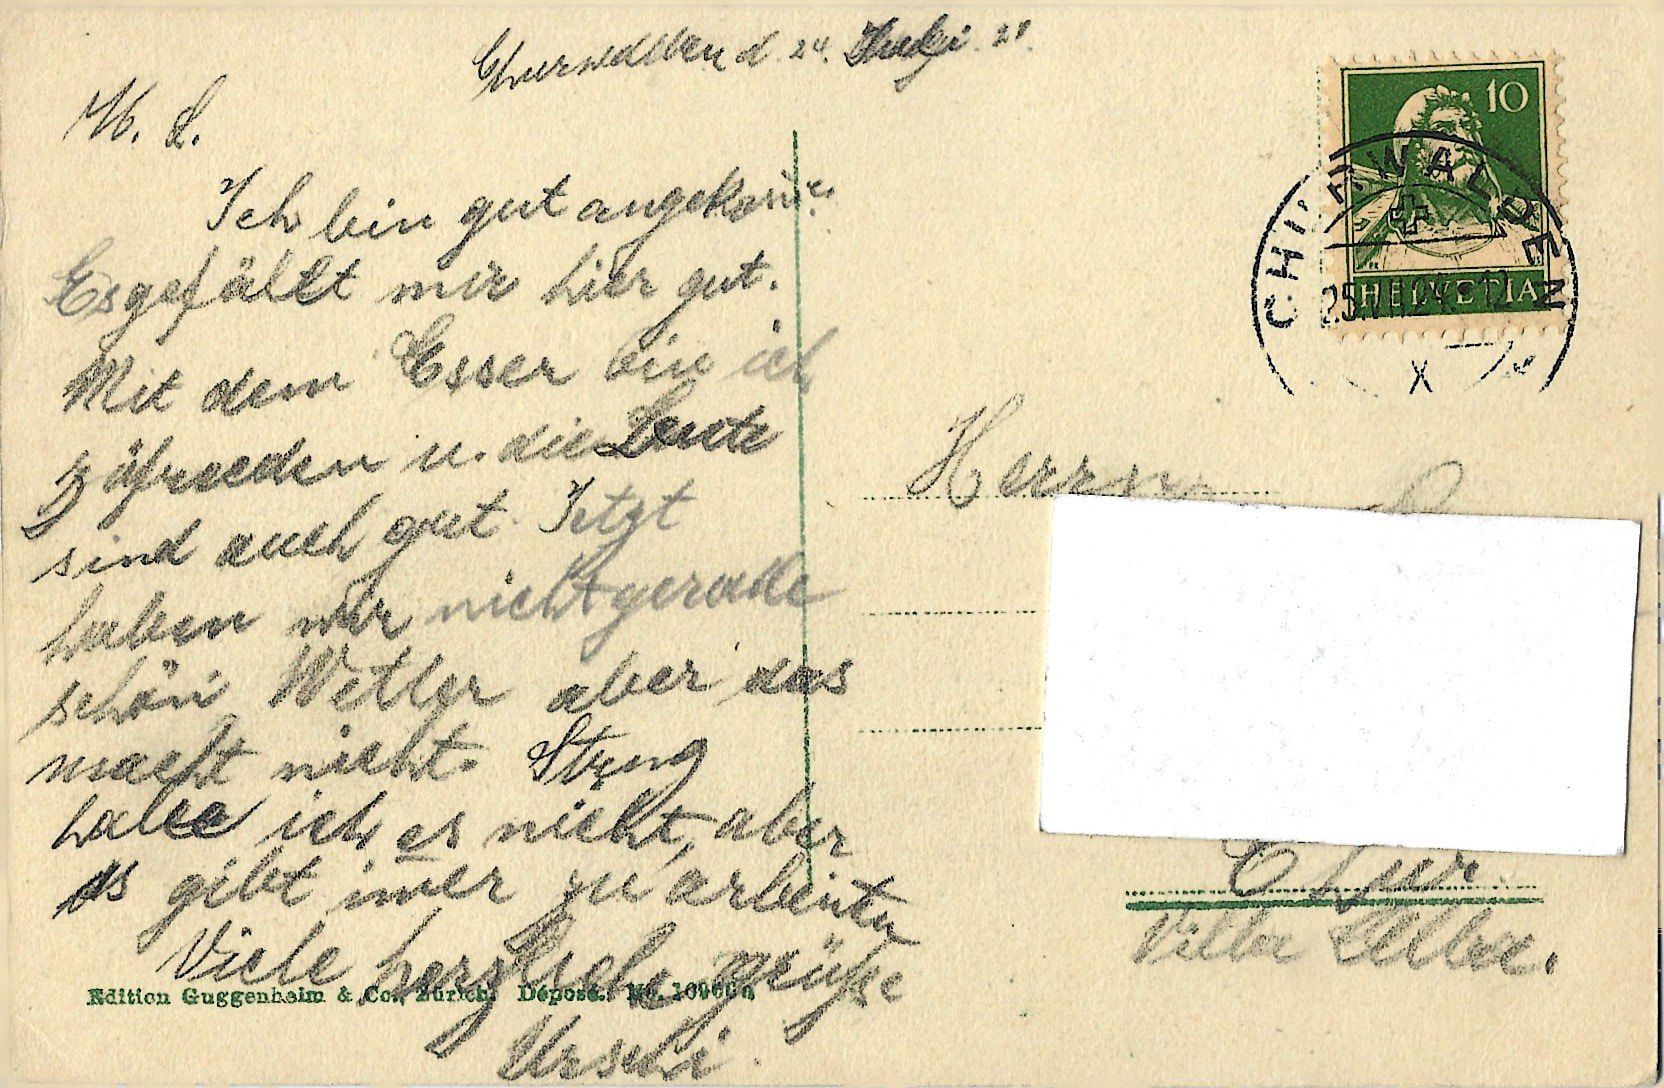 Churwalden d. 24. 21.
M. L.
Ich bin gut angekom̄e
Es gefällt mir hier gut.
Mit dem Esser bin ich
zufrieden u. die Leute
sind auch gut Jetzt
haben wir nicht gerade
schön Wetter aber das
macht nicht. Streng
habe ich es nicht, aber
es gibt im̄er zu arbeiten
Viele herzliche grüsse
Urseli.
10
HELVETIA
CHURWALDEN
X
Herrn
Chur.
Villa
Edition Guggenheim & Co., Zürich. Déposé. No.